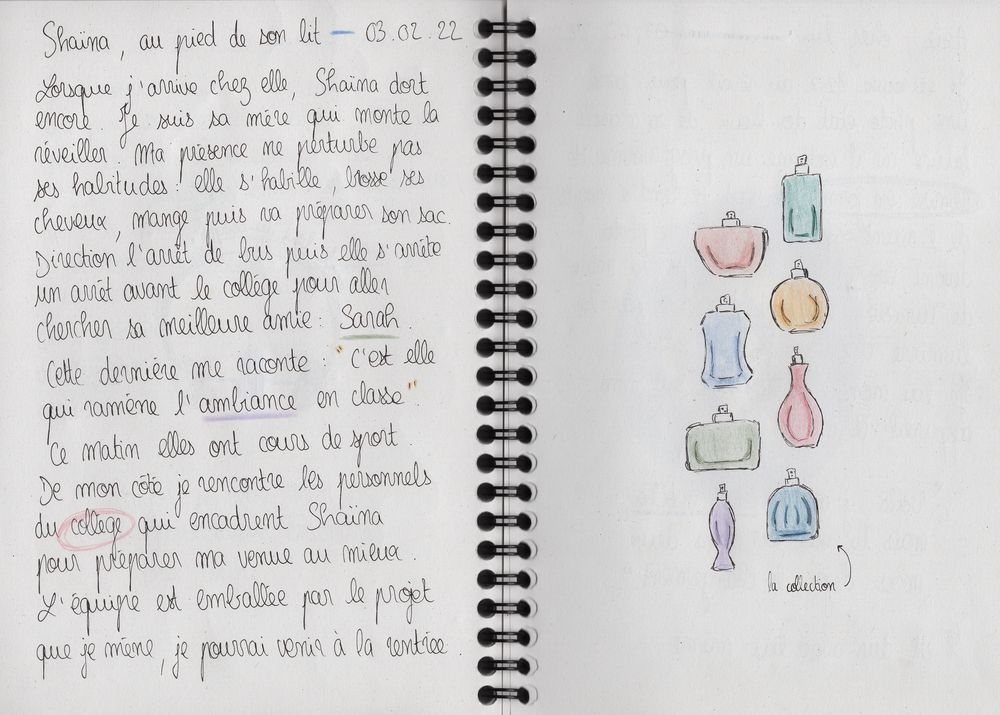 Shaïna, au pied de son lit — 03.02.22
Lorsque j'arrive chez elle, Shaïna dort
encore. Je suis sa mère qui monte la
réveiller. Ma présence ne perturbe pas
ses habitudes : elle s'habille, brosse ses
cheveux, mange puis va préparer son sac.
Direction l'arrêt de bus puis elle s'arrête
un arrêt avant le collège pour aller
chercher sa meilleure amie : Sarah.
Cette dernière me raconte : "c'est elle
qui ramène l'ambiance en classe"
Ce matin elles ont cours de sport.
De mon côté je rencontre les personnels
du collège qui encadrent Shaïna
pour préparer ma venue au mieux.
L'équipe est emballée par le projet
que je mène, je pourrai venir à la rentrée.
la collection